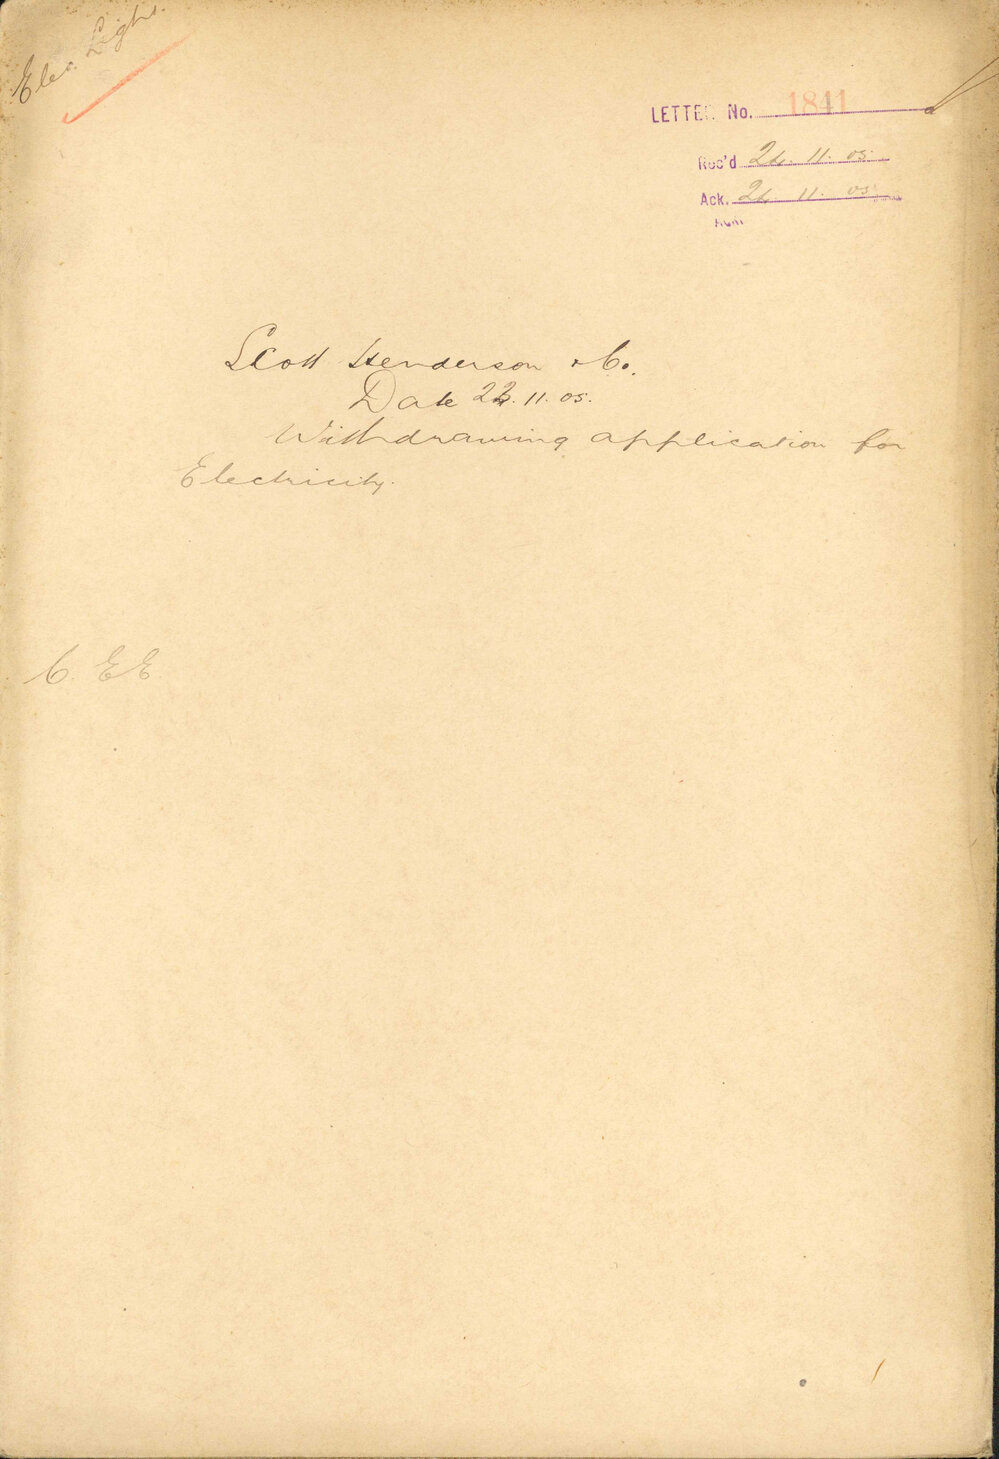 Elec. Light.
LETTER No. 1841
Rec'd 24. 11. 05.
Ack. 24. 11. 05.
Scott Henderson & Co.
Date 23. 11. 05.
Withdrawing application for
Electricity.
C. E E.